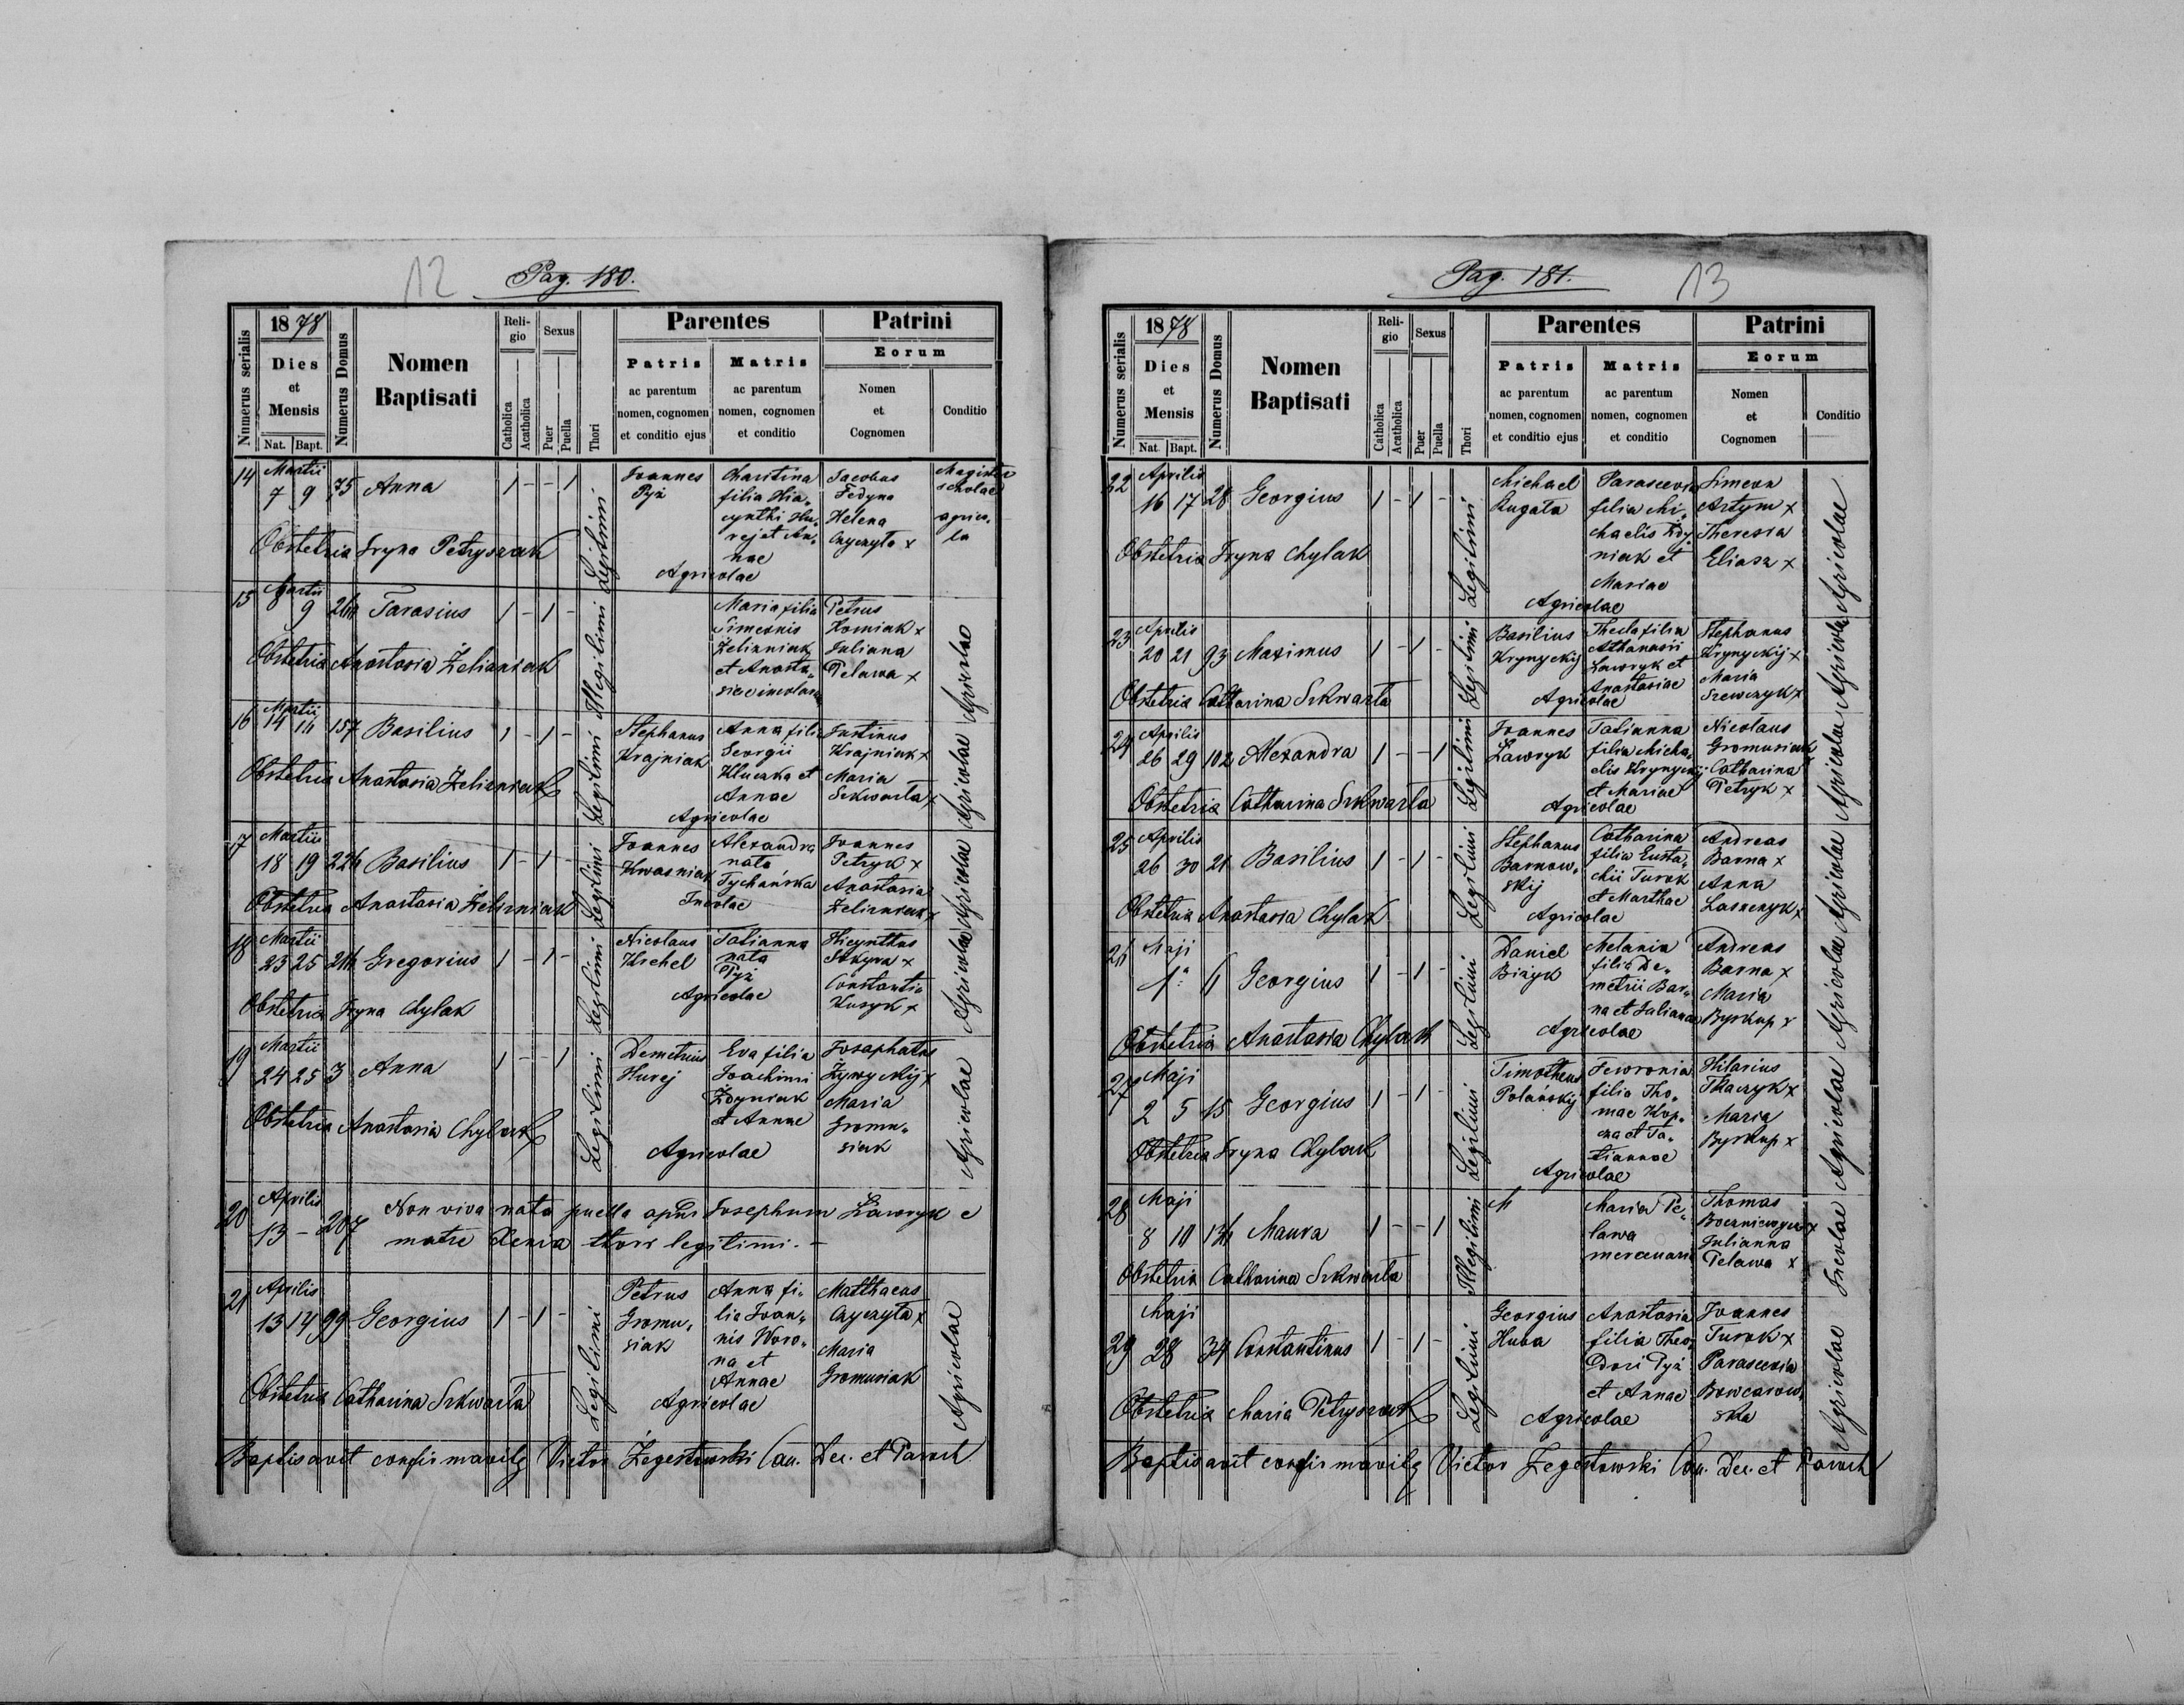 12
Pag. 180.
Numerus serialis
1878
Dies
et
Mensis
Nat. Bapt.
Numerus Domus
Nomen
Baptisati
Reli-
gio
Catholica
Acatholica
Sexus
Puer
Puella
Thori
Parentes
Patris
ac parentum
nomen, cognomen
et conditio ejus
Matris
ac parentum
nomen, cognomen
et conditio
Patrini
Eorum
Nomen
et
Cognomen
Conditio
14
Martii
7 9 75 Anna 1 - - 1
Legitimi
Joannes
Pyż
Charitina
filia Hia-
cynthi Hu-
rej et An-
nae
Agricolae
Jacobus
Fedyna
Helena
Cnycnyta x
Magister
scholae
agrico-
la
Obstetrix Iryna Petryszak
15
Martii
8 9 Tarasius 1 - 1 -
Illegitimi
Maria filia
Simeonis
Żelizniak
et Anasta-
siae
Petrus
Homiak x
Juliana
Pelawa x
Agricolae
Obstetrix Anastasia Żelizniak
16
Martii
14 157 Basilius 1 - 1 -
Legitimi
Stephanus
Krajniak
Anna filia
Georgii
et
Annae
Agricolae
Justinus
Krajniak x
Maria
Szkwarla x
Agricolae
Obstetrix Anastasia Żelizniak
17
Martii
18 19 226 Basilius 1 - 1 -
Legitimi
Joannes
Kwasniak
Alexandra
nata
Tychańska
Incolae
Joannes
Petryk x
Anastasia
Żelizniak x
Agricolae
Obstetrix Anastasia Żelizniak
18
Martii
23 25 Gregorius 1 - 1 -
Legitimi
Nicolaus
Krehel
Tatianna
nata
Pyż
Agricolae
Hicynthus
Sokyra x
Constantia
Kusyk x
Agricolae
Obstetrix Iryna Chylak
19
Martii
24 25 3 Anna 1 - - 1
Legitimi
Demetrius
Hurej
Eva filia
Joachimi
Żdyniak
et Annae
Agricolae
Josaphatus
Żywyckij x
Maria
Gromu-
siak
Agricolae
Obstetrix Anastasia Chylak
20
Aprilis
13 - 207
Non viva nata puella apud Josephum Ławryk e
matre Xenia thori legitimi. -
21
Aprilis
13 14 99 Georgius 1 - 1 -
Legitimi
Petrus
Gromu-
siak
Anna fi-
lia Joan-
nis Woro-
na et
Annae
Agricolae
Matthaeus
Cnycnyta x
Maria
Gromusiak
Agricolae
Obstetrix Catharina Szkwarla
Baptisavit confirmavitq Victor Żegestowski Can. Dec. et Paroch
Pag. 181.
13
Numerus serialis
1878
Dies
et
Mensis
Nat. Bapt.
Numerus Domus
Nomen
Baptisati
Reli-
gio
Catholica
Acatholica
Sexus
Puer
Puella
Thori
Parentes
Patris
ac parentum
nomen, cognomen
et conditio ejus
Matris
ac parentum
nomen, cognomen
et conditio
Patrini
Eorum
Nomen
et
Cognomen
Conditio
22
Aprilis
16 17 28 Georgius 1 - 1 -
Legitimi
Michael
Rugata
Parascevia
filia Mi-
chaelis Żdy-
niak et
Mariae
Agricolae
Simeon
Artym x
Theresia
Eliasz x
Agricolae
Obstetrix Iryna Chylak
23
Aprilis
20 21 93 Maximus 1 - 1 -
Legitimi
Basilius
Krynyckij
Thecla filia
Athanasii
Ławryk et
Anastasiae
Agricolae
Stephanus
Krynyckij x
Maria
Szewczyk x
Agricolae
Obstetrix Catharina Szkwarla
24
Aprilis
26 29 102 Alexandra 1 - - 1
Legitimi
Joannes
Ławryk
Tatianna
filia Micha-
elis Krynyckij
et Mariae
Agricolae
Nicolaus
Gromusiak
Catharina
Petryk x
Agricolae
Obstetrix Catharina Szkwarla
25
Aprilis
26 30 21 Basilius 1 - 1 -
Legitimi
Stephanus
Barnow-
skij
Catharina
filia Eusta-
chii Turok
et Marthae
Agricolae
Andreas
Barna x
Anna
Agricolae
Obstetrix Anastasia Chylak
26
Maji
1a 6 Georgius 1 - 1 -
Legitimi
Daniel
Biżyk
Melania
filia De-
metrii Bar-
na et Julianae
Agricolae
Andreas
Barna x
Maria
Byskup x
Agricolae
Obstetrix Anastasia Chylak
27
Maji
2 5 15 Georgius 1 - 1 -
Legitimi
Timotheus
Polańskij
Fewronia
filia Tho-
mae Kop-
cza et Ta-
tiannae
Agricolae
Hilarius
Tkaczyk x
Maria
Byskup x
Agricolae
Obstetrix Iryna Chylak
28
Maji
8 10 Maura 1 - - 1
Illegitimi
Maria Pe-
lawa
mercenaria
Thomas
Julianna
Pelawa x
Incolae
Obstetrix Catharina Szkwarla
29
Maji
28 34 Constantinus 1 - 1 -
Legitimi
Georgius
Huba
Anastasia
filia Theo-
dori Pyż
et Annae
Agricolae
Joannes
Turok x
Parascevia
Bowcarow-
ska
Agricolae
Obstetrix Maria Petryszak
Baptisavit confirmavitq Victor Żegestowski Can. Dec. et Paroch